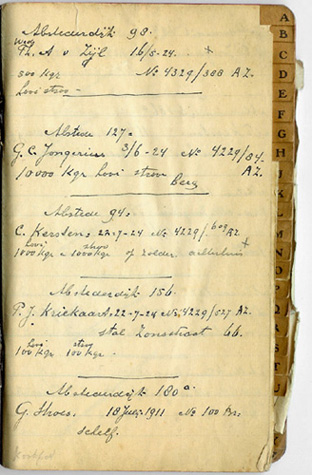 Abstederdijk 98.
Wed.
Th. A v Zijl 16/5-24. +
500 kgr No 4329/388 AZ.
hooi stroo
Abstede 127.
G. C. Jongerius 3/6-24 No 4229/
AZ.
10000 kgr hooi stroo
Berg
Abstede 94.
C. Kerstens 22-7-24 No 4229/609 AZ
+
hooi stroo
1000 kgr 1000 kgr of zolder
Abstederdijk 156.
P. J. Kriekaart. 22-7-24 No. 4229/527 AZ.
stal Zonstraat 66.
hooi stroo
100 kgr 100 kgr.
Abstederdijk 180a
G. 18 Juli 1911 No 100 Brs
schelf.
A
B
C
D
E
F
G
H
I
J
K
L
M
N
O
P
Q
R
S
T
U